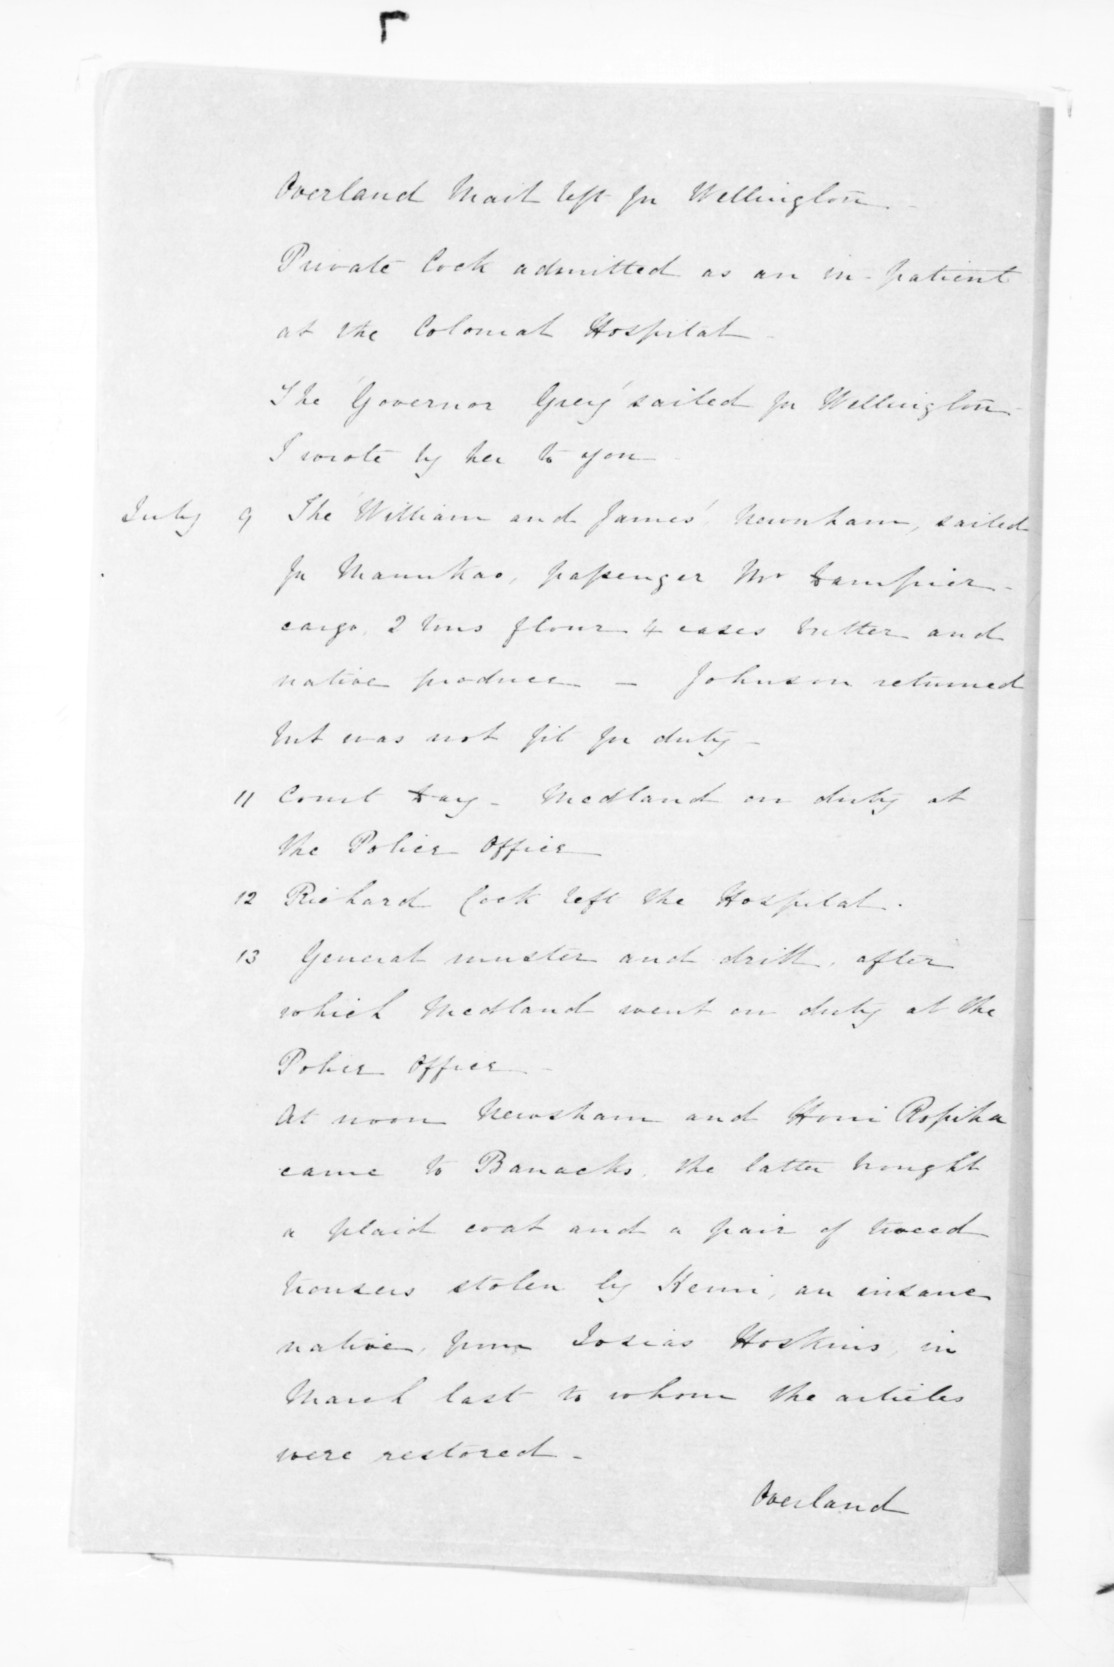 Overland Mail left for Wellington.
Private Cock admitted as an in-patient
at the Colonial Hospital -
The 'Governor Grey' sailed for Wellington
I wrote by her to you
July 9 The 'William and James', Newnham, sailed
for Manukao, passenger Mr Dampier -
cargo, 2 tons flour 4 cases butter and
native produce - Johnson returned
but was not fit for duty -
11 Court Day - Medland on duty at
the Police Office
12 Richard Cock left the Hospital.
13 General muster and drill, after
which Medland went on duty at the
Police Office -
At noon Newsham and Honi Ropiha
came to Barracks, the latter brought
a plaid coat and a pair of tweed
trousers stolen by Henri, an insane
native, from Josias Hoskins, in
March last to whom the articles
were restored -
Overland